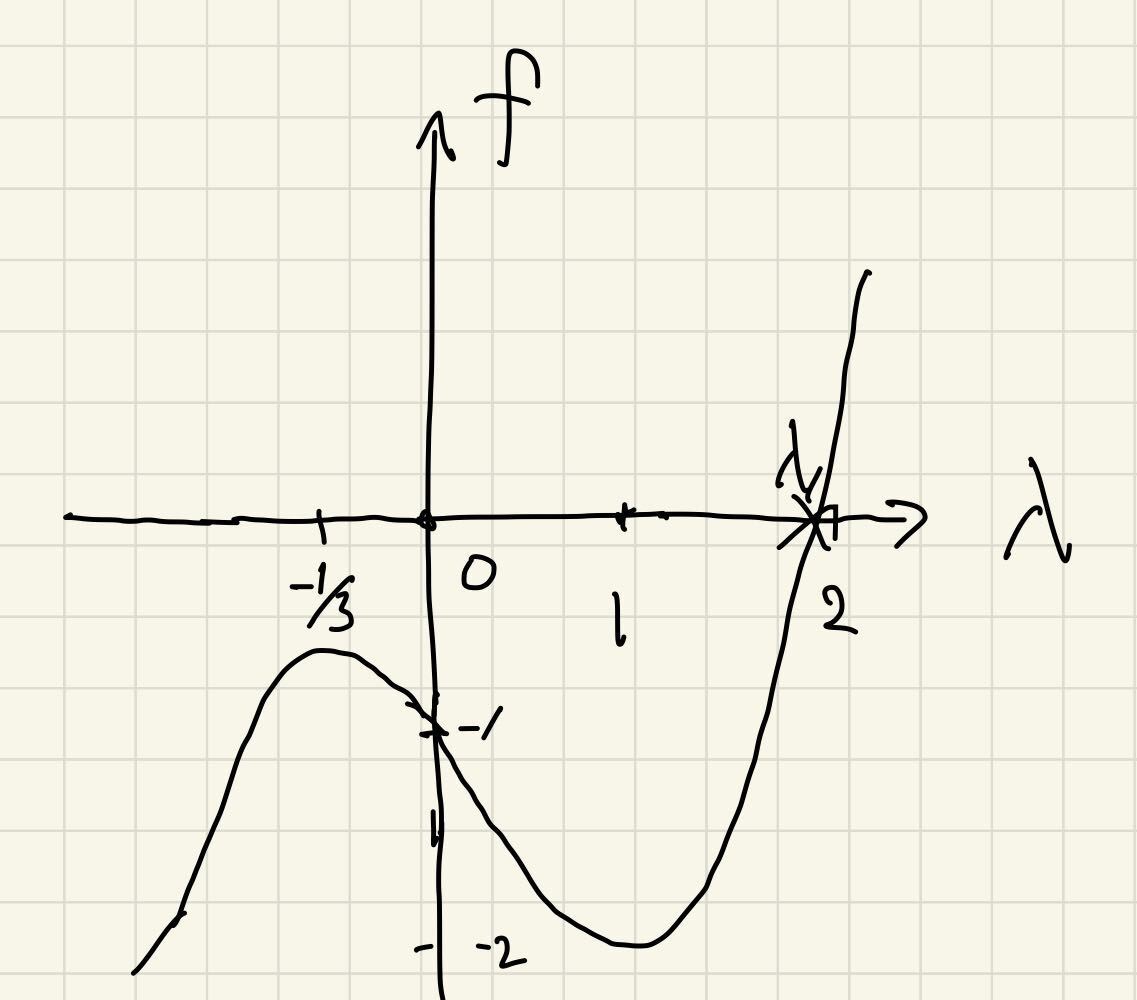 f
λ
λ
-1/3
0
1
2
-1
-2